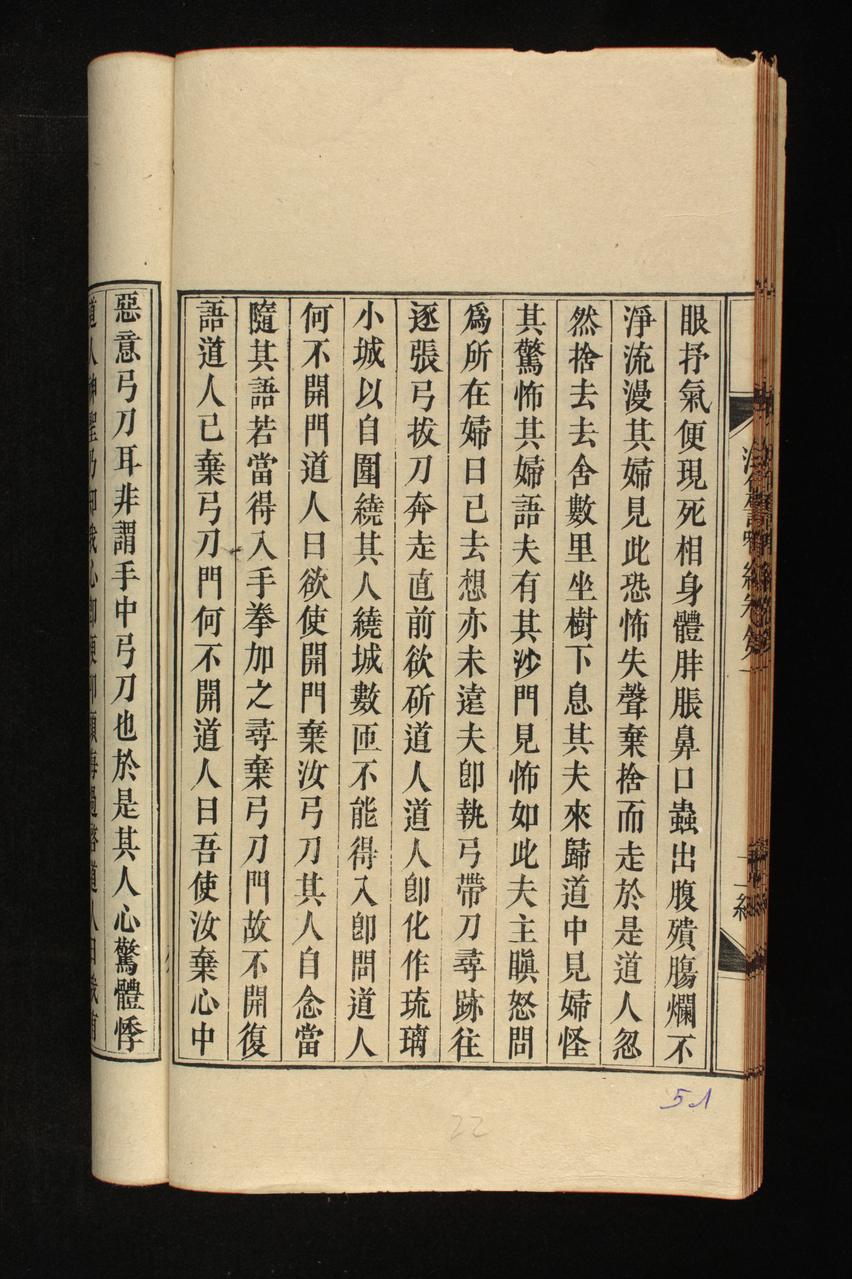 眼抒氣便現死相身體胖脹鼻口蟲出腹殨膓爛不
淨流漫其婦見此恐怖失聲棄捨而走於是道人忽
然捨去去舍數里坐樹下息其夫來歸道中見婦怪
其驚怖其婦語夫有其沙門見怖如此夫主瞋怒問
爲所在婦曰已去想亦未遠夫卽執弓帶刀尋跡往
逐張弓拔刀奔走直前欲斫道人道人卽化作琉璃
小城以自圍繞其人繞城數匝不能得入卽問道人
何不開門道人曰欲使開門棄汝弓刀其人自念當
隨其語若當得入手拳加之尋棄弓刀門故不開復
語道人已棄弓刀門何不開道人曰吾使汝棄心中
惡意弓刀耳非謂手中弓刀也於是其人心驚體悸
51
22